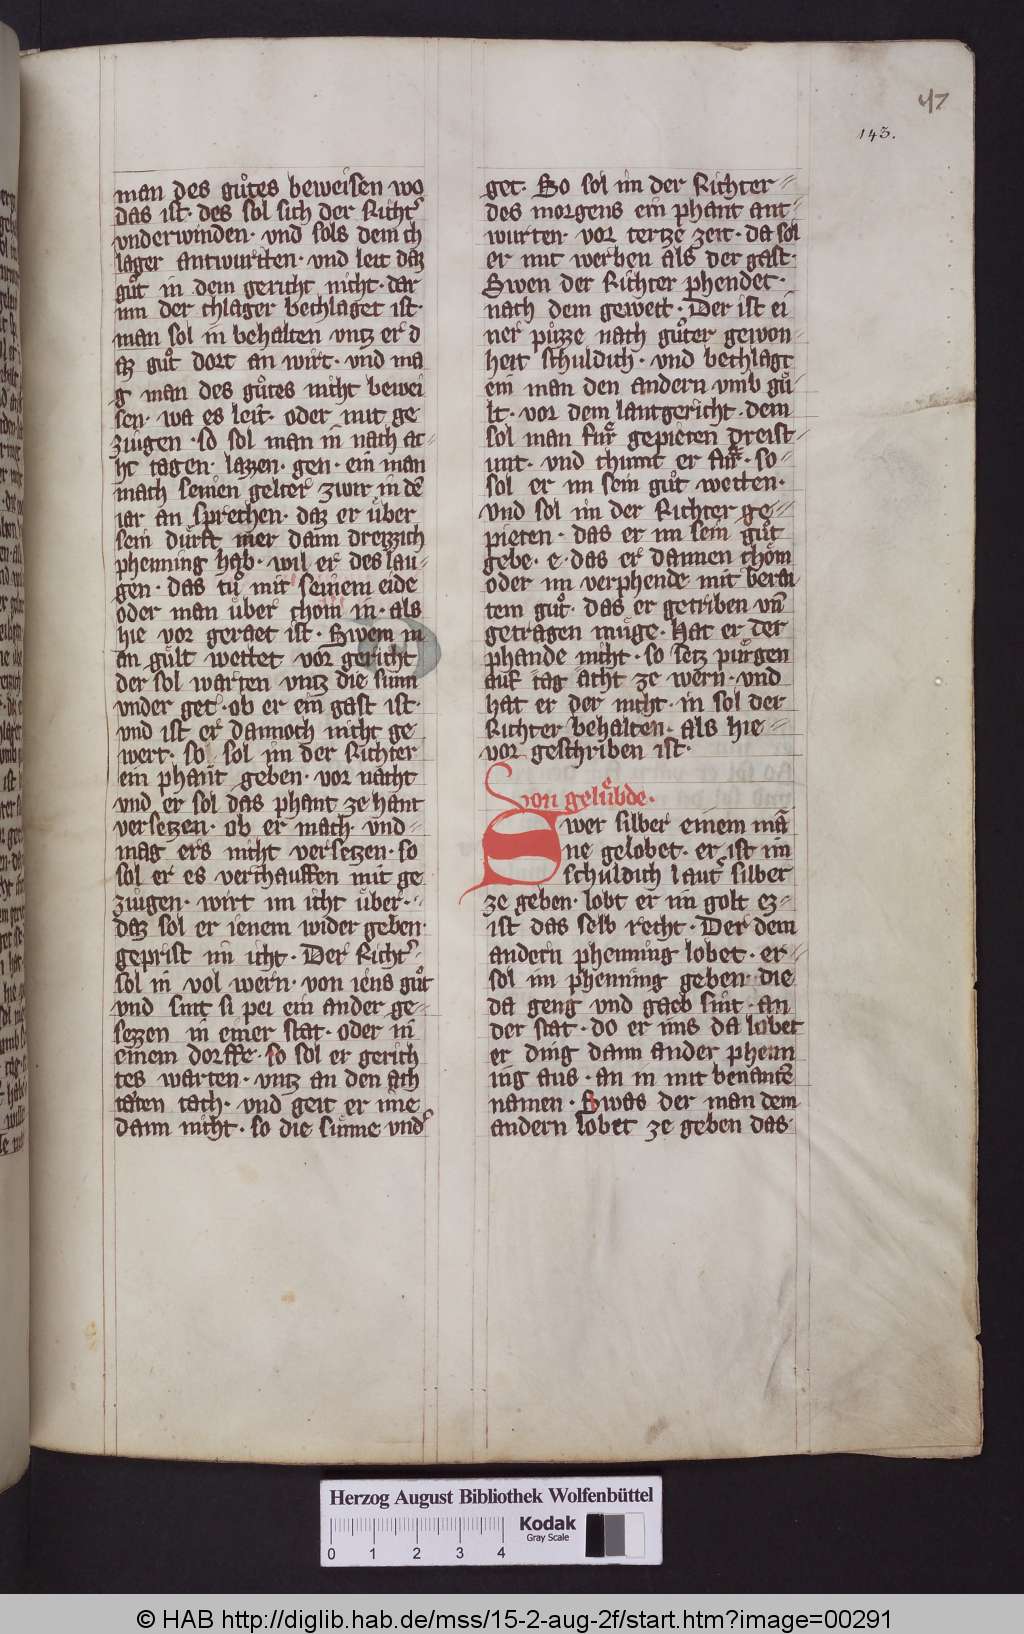 47
143.
man des gůtes beweisen wo
das ist · des sol sich der Richt᾽
vnderwinden · vnd sols dem ch
lager antwurtten · vnd leit daz
gůt in dem gericht nicht · dar
vm der chlager bechlaget ist ·
man sol in behalten vntz er d
az gůt dort an wirt · vnd ma
g man des gůtes nicht bewei
sen · wa es leit · oder mit ge
ziugen · so sol man in nach ac-
ht tagen · lazzen · gen · ein man
mach seinen gelter zwir in dē
iar an sprechen · daz er ůber
sein dürft mer dann dreizzich
phenning hab · wil er des lau-
gen · das tů mit seinem eide
oder man ůber chom in · als
hie vor geraet ist · Swem in
an gůlt wettet vor gericht
der sol warten vntz die sunn
vnder get · ob er ein gast ist ·
vnd ist er dannoch nicht ge
wert · so sol im der Richter
ein phant geben · vor nacht
vnd er sol das phant ze hant
versetzen · ob er mach · vnd-
mag ers nicht versetzen · so
sol er es verchauffen mit ge
ziůgen · wirt im icht ůber ·-
daz sol er ienem wider geben ·
geprist im icht · Der Richt᾽-
sol in vol wern · von iens gůt
vnd sint si pei ein ander ge-
sezzen in einer stat · oder in
einem dorffe · so sol er gerich
tes warten · vntz an den ach
taten tach · vnd geit er ime
dann nicht · so die sůnne vnd᾽
get · So sol im der Richter-
des morgens ein phant ant-
wurten · vor tertze zeit · da sol
er mit werben als der gast ·
Swen der Richter phendet ·
nach dem gewett · Der ist ei
ner půzze nach gůter gewon-
heit schuldich · vnd bechlagt
ein man den andern vmb gů-
lt · vor dem lantgericht · dem
sol man fůr gepieten dreist-
unt · vnd chumt er fůr · so-
sol er im sein gůt wetten ·
Vnd sol im der Richter ge-
pieten · das er im sein gůt
gebe · e · das er dannen chöm
oder im verphende mit berai
tem gůt · das er getriben vn̄
getragen můge · Hat er der
phande nicht · so setz pürgen
auf tag acht ze wern · vnd
hat er der nicht · in sol der
Richter behalten · als hie-
vor geschriben ist ·
Von gelůbde ·
Swer silber einem mā
ne gelobet · er ist im
schuldich laut᾽ silber
ze geben · lobt er im golt ez-
ist das selb recht · Der dem
andern phenning lobet · er-
sol im phenning geben · die
da geng vnd gaeb sint · an
der stat · do er ims da lobet
er ding dann ander phenn
ing aus · an in mit benantē
namen · Swas der man dem
andern lobet ze geben das ·
Herzog August Bibliothek Wolfenbüttel
Kodak
Gray Scale
0 1 2 3 4
© HAB http://diglib.hab.de/mss/15-2-aug-2f/start.htm?image=00291